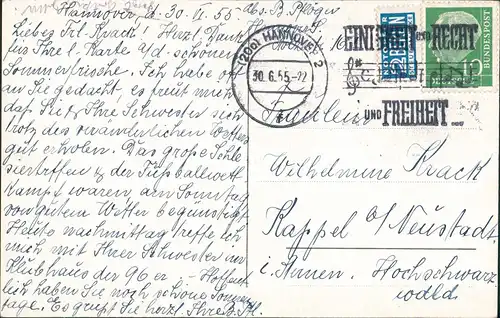 Hannover, d. 30. VI. 55.
Liebes Frl. Krack! Herzl. Dank
für Ihre l. Karte a/d. schönen
Sommerfrische. Ich habe oft
an Sie gedacht, es freut mich
daß Sie u. Ihre Schwester sich
trotz des veränderlichen Wetters
gut erholen. Das große Schle-
siertreffen u. der Fußballwett-
kampf waren am Sonntag
von gutem Wetter begünstigt.
Heute nachmittag treffe ich
mich mit Ihrer Schwester im
Klubhaus der 96 er. - Hoffent-
lich haben Sie noch schöne Sonnen-
tage. Es grüßt Sie herzl. Ihre B. Pf.
(20a) HANNOVER 2
30.6.55.-22
EINIGKEIT UND RECHT
UND FREIHEIT ...
NOTOPFER
2 BERLIN
STEUERMARKE
DEUTSCHE BUNDESPOST
10
Fräulein
Wilhelmine Krack
Kappel b/Neustadt
Hochschwarz
wald